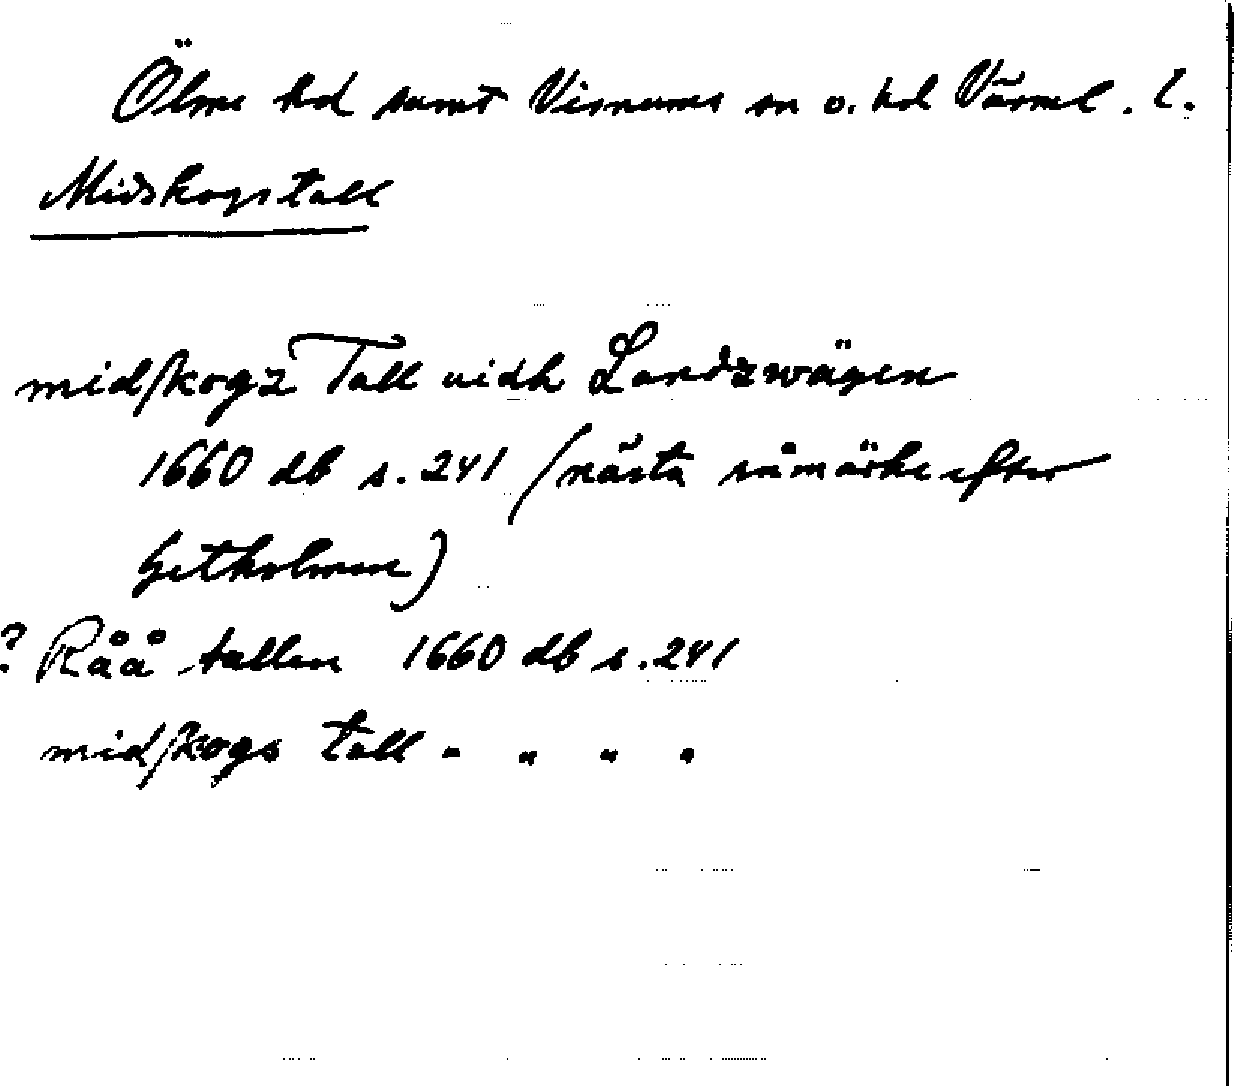 Ölme hd samt Visnums sn o. hd Värml. l.
Midskogstall
midſkogz Tall uidh Landzwägen
1660 db s. 241 (nästa råmärke efter
Getholmen)
? Råå tallen 1660 db s. 241
midſkogs tall " " " "